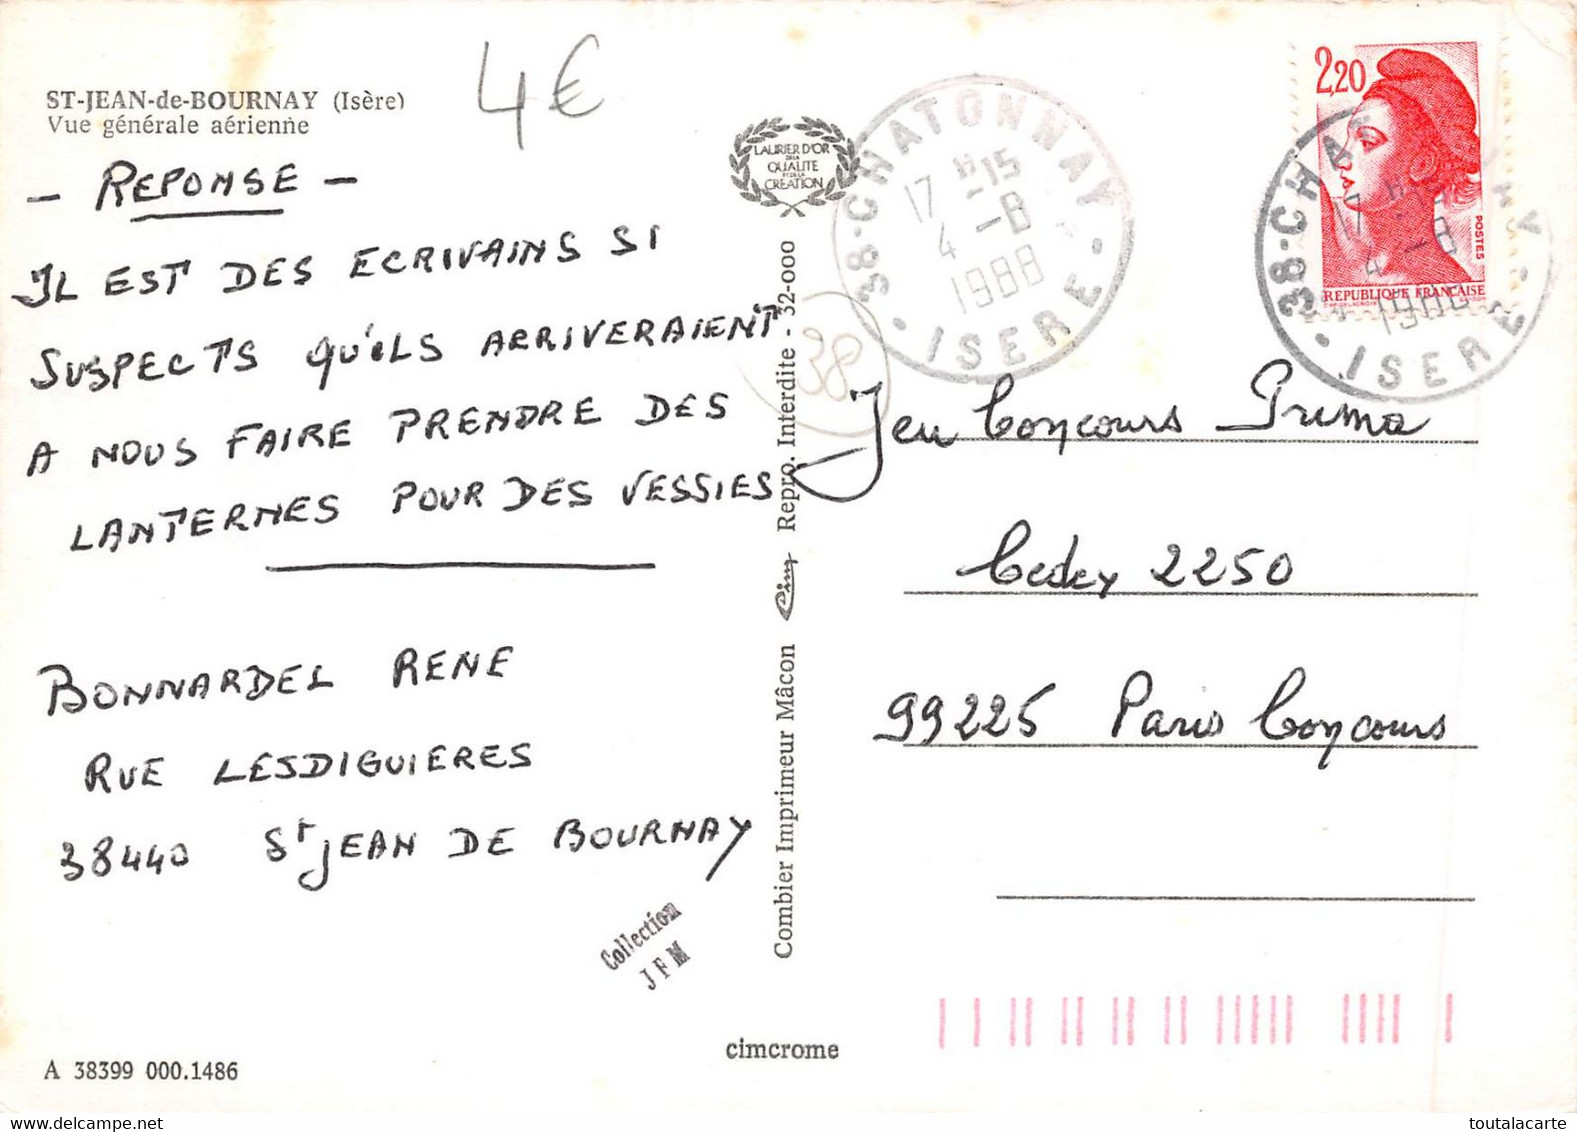 ST-JEAN-de-BOURNAY (Isère)
Vue générale aérienne
4€
- REPONSE -
IL EST DES ECRIVAINS SI
SUSPECTS QU'ILS ARRIVERAIENT
A NOUS FAIRE PRENDRE DES
LANTERNES POUR DES VESSIES
BONNARDEL RENE
RUE LESDIGUIERES
38440 St JEAN DE BOURNAY
Collection
JFM
A 38399 000.1486
cimcrome
LAURIER D'OR
DE LA
QUALITE
ET DE LA
CREATION
Combier Imprimeur Mâcon Cim Repro. Interdite - 32-000
38
38-CHATONNAY
17 H-15
4 -8
1988
- ISERE -
2,20
POSTES
REPUBLIQUE FRANCAISE
38-CHA
17
4 -8
- ISERE -
Jeu Concours Prima
Cedex 2250
99225 Paris Concours
toutalacarte